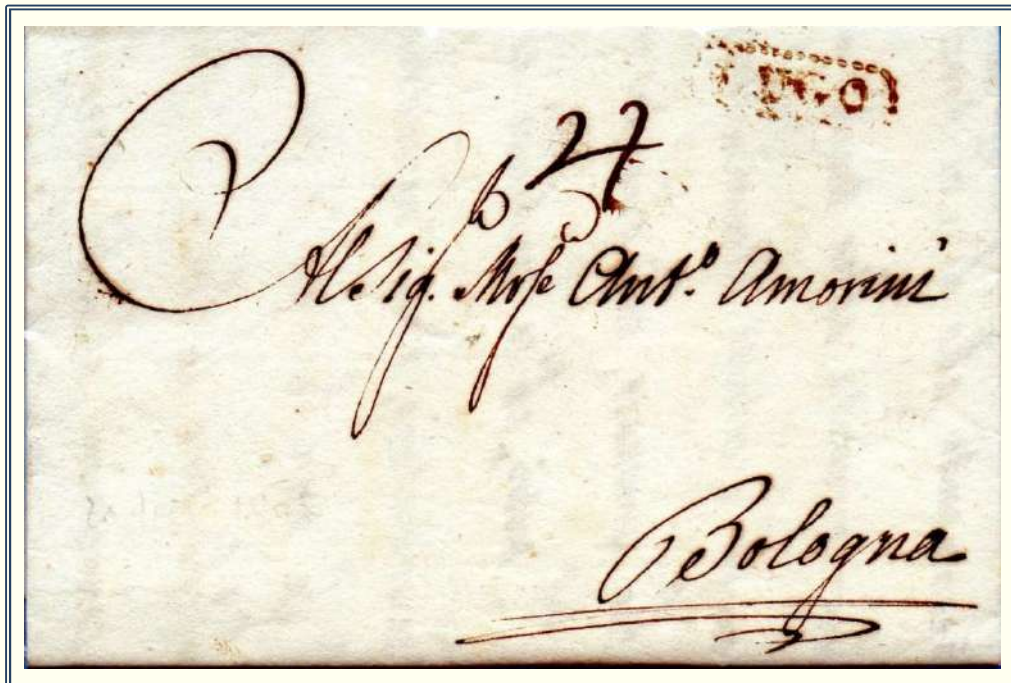 LUGO
4
Al Sig. Antº. Amorini
Bologna